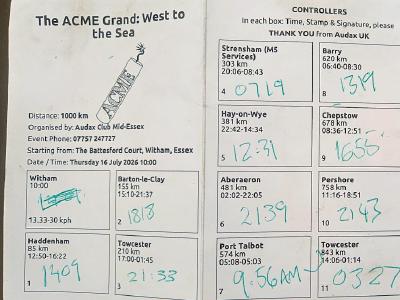 The ACME Grand: West to
the Sea
ACME
Distance: 1000 km
Organised by: Audax Club Mid-Essex
Event Phone: 07757 247727
Starting from: The Battesford Court, Witham, Essex
Date / Time: Thursday 16 July 2026 10:00
Witham
10:00
13.33-30 kph
Haddenham
85 km
12:50-16:22
1
1409
Barton-le-Clay
155 km
15:10-21:37
2
1818
Towcester
210 km
17:00-01:45
3
21:33
CONTROLLERS
In each box: Time, Stamp & Signature, please
THANK YOU from Audax UK
Strensham (M5
Services)
303 km
20:06-08:43
4
0719
Hay-on-Wye
381 km
22:42-14:34
5
12:31
Aberaeron
481 km
02:02-22:05
6
2139
Port Talbot
574 km
05:08-05:03
7
9:56AM
Barry
620 km
06:40-08:30
8
1319
Chepstow
678 km
08:36-12:51
9
1655
Pershore
758 km
11:16-18:51
10
2143
Towcester
843 km
14:06-01:14
11
0327